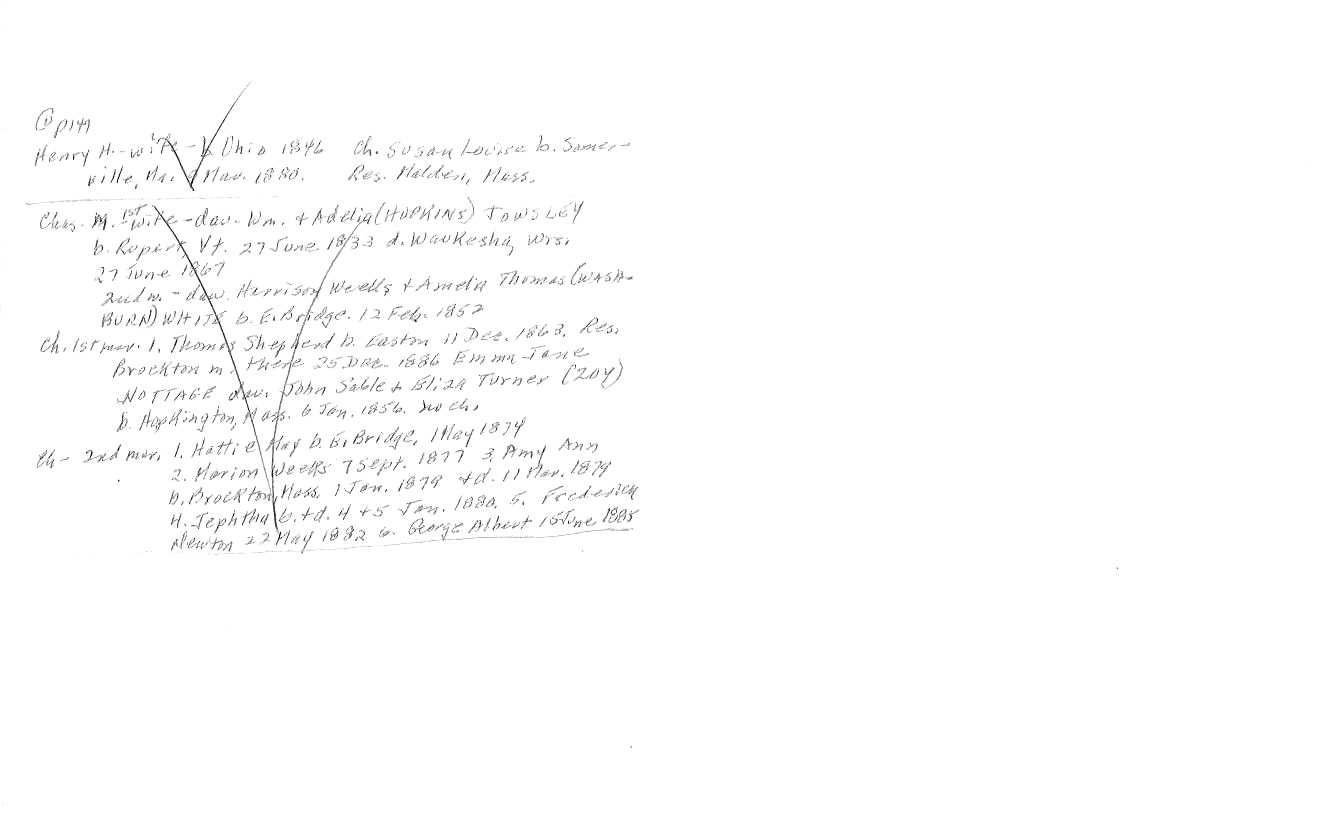 ① p149
Henry H. - wife - b. Ohio 1846 Ch. Susan Louise b. Somer-
ville, Ma. 9 Mar. 1880. Res. Malden, Mass.
Chas. M. - 1ST wife - dau. Wm. + Adelia (HOPKINS) TOWSLEY
b. Rupert, Vt. 27 June 1833 d. Waukesha, Wis.
27 June 1867
2nd m. - dau. Harrison Weeks + Amelia Thomas (WASH-
BURN) WHITE b. E. Bridge. 12 Feb. 1852
Ch. 1st mar. 1. Thomas Shepherd b. Easton 11 Dec. 1863. Res.
Brockton m. there 25 Dec. 1886 Emma Jane
NOTTAGE dau. John Sable + Eliza Turner (LOY)
b. Hopkington, Mass. 6 Jan. 1856. no ch.
Ch - 2nd mar. 1. Hattie May b. E. Bridge, 1 May 1874
2. Marion Weeks 7 Sept. 1877 3. Amy Ann
b. Brockton, Mass. 1 Jan. 1879 + d. 11 Mar. 1879
4. Jephtha b. + d. 4 + 5 Jan. 1880. 5. Frederick
Newton 22 May 1882 6. George Albert 15 June 1885